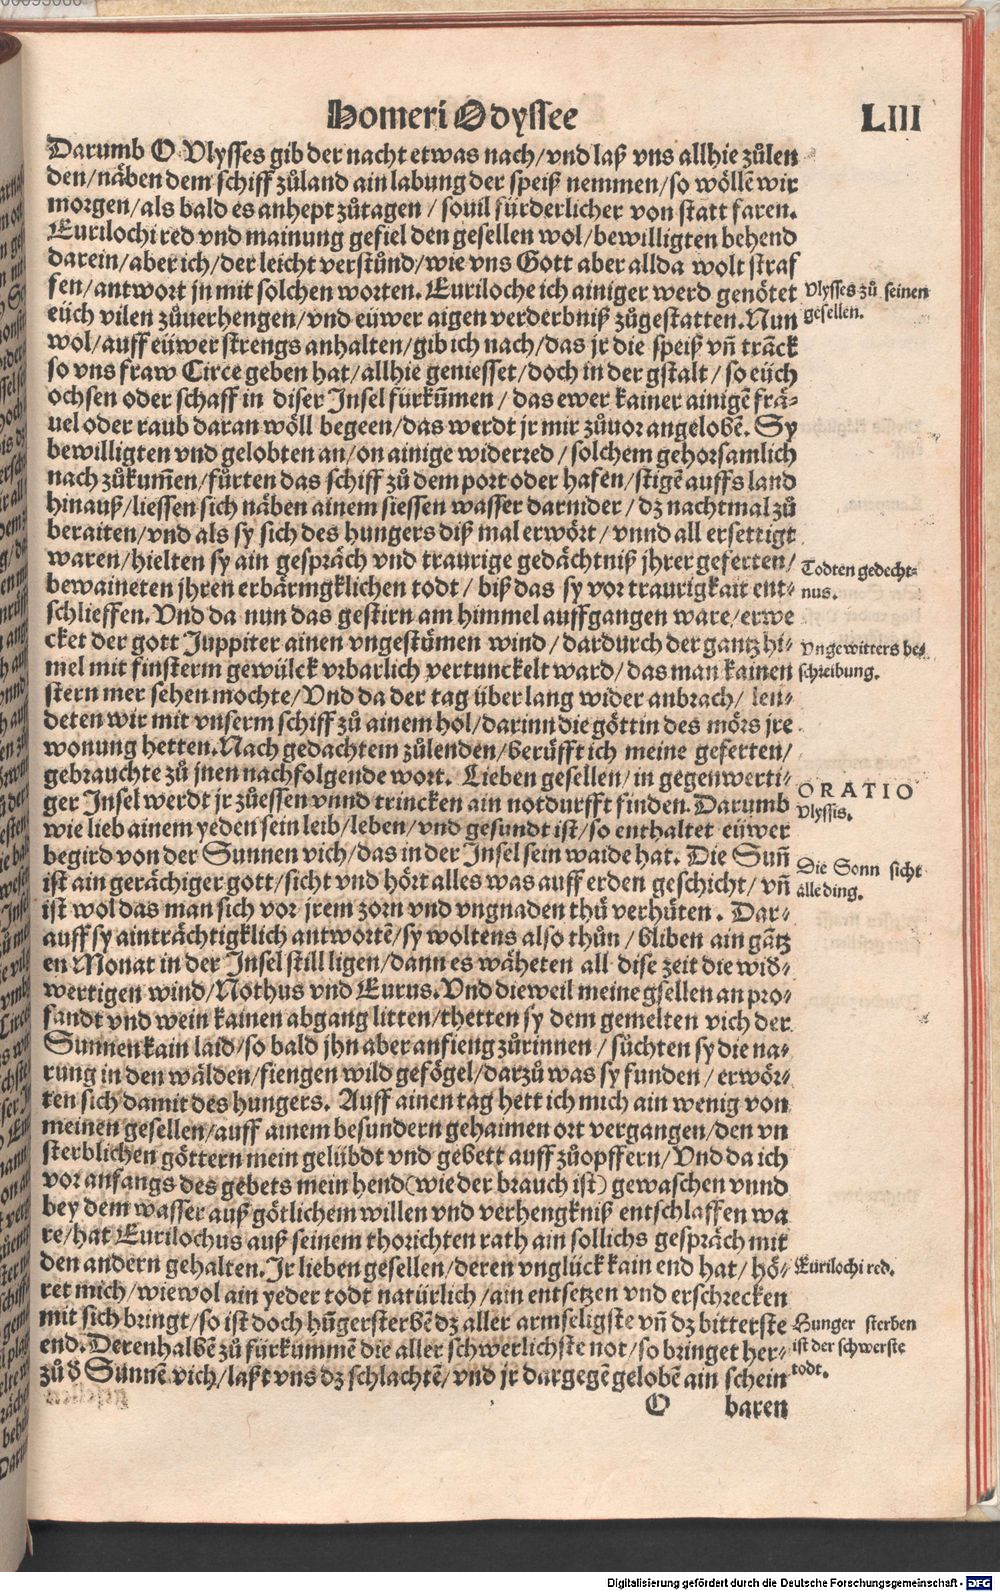 Homeri Odyssee
LIII
Darumb O Vlysses gib der nacht etwas nach/vnd laß vns allhie zůlen
den/näben dem schiff zůland ain labung der speiß nemmen/so wöllē wir
morgen/als bald es anhept zůtagen / souil fürderlicher von statt faren.
Eurilochi red vnd mainung gefiel den gesellen wol/bewilligten behend
darein/aber ich/der leicht verstůnd/wie vns Gott aber allda wolt straf
fen/antwort jn mit solchen worten. Euriloche ich ainiger werd genötet
eüch vilen zůuerhengen/vnd eüwer aigen verderbniß zůgestatten. Nun
wol/auff eüwer strengs anhalten/gib ich nach/das jr die speiß vñ trãck
so vns fraw Circe geben hat/allhie geniesset/doch in der gstalt / so eüch
ochsen oder schaff in diser Insel fürkum̃en / das ewer kainer ainigē frä⸗
uel oder raub daran wöll begeen/das werdt jr mir zůuor angelobē. Sy
bewilligten vnd gelobten an/on ainige widerred / solchem gehorsamlich
nach zůkum̃en/fürten das schiff zů dem port oder hafen/stigē auffs land
hinauß/liessen sich näben ainem siessen wasser darnider / dz nachtmal zů
beraiten/vnd als sy sich des hungers diß mal erwört / vnnd all ersettigt
waren/hielten sy ain gespräch vnd traurige gedächtniß jhrer geferten/
bewaineten jhren erbärmgklichen todt / biß das sy vor traurigkait ent⸗
schlieffen. Vnd da nun das gestirn am himmel auffgangen ware/erwe
cket der gott Juppiter ainen vngestümen wind / dardurch der gantz hi⸗
mel mit finsterm gewülck vrbarlich vertunckelt ward / das man kainen
stern mer sehen mochte/Vnd da der tag über lang wider anbrach/ len⸗
deten wir mit vnserm schiff zů ainem hol/darinn die göttin des mörs jre
wonung hetten. Nach gedachtem zůlenden/berůfft ich meine geferten/
gebrauchte zů jnen nachfolgende wort. Lieben gesellen/in gegenwerti⸗
ger Insel werdt jr zůessen vnnd trincken ain notdurfft finden. Darumb
wie lieb ainem yeden sein leib/leben/vnd gesundt ist/so enthaltet eüwer
begird von der Sunnen vich/das in der Insel sein waide hat. Die Suñ
ist ain gerächiger gott/sicht vnd hört alles was auff erden geschicht/ vñ
ist wol das man sich vor jrem zorn vnd vngnaden thů verhüten. Dar⸗
auff sy ainträchtigklich antwortē/sy woltens also thůn / bliben ain gãtz
en Monat in der Insel still ligen/dann es wäheten all dise zeit die wid⸗
wertigen wind/Nothus vnd Eurus. Vnd dieweil meine gsellen an pro⸗
fandt vnd wein kainen abgang litten/thetten sy dem gemelten vich der
Sunnen kain laid/so bald jhn aber anfieng zůrinnen / sůchten sy die na⸗
rung in den wälden/fiengen wild gefögel/darzů was sy funden / erwör⸗
ten sich damit des hungers. Auff ainen tag hett ich mich ain wenig von
meinen gesellen/auff ainem besundern gehaimen ort vergangen/den vn
sterblichen göttern mein gelübdt vnd gebett auff zůopffern/Vnd da ich
vor anfangs des gebets mein hend(wie der brauch ist) gewaschen vnnd
bey dem wasser auß götlichem willen vnd verhengkniß entschlaffen wa
re/hat Eurilochus auß seinem thorichten rath ain sollichs gespräch mit
den andern gehalten. Ir lieben gesellen/deren vnglück kain end hat/ hö⸗
ret mich/wiewol ain yeder todt natürlich/ain entsetzen vnd erschrecken
mit sich bringt/so ist doch hũgersterbē dz aller armseligste vñ dz bitterste
end. Derenhalbē zů fürkummē die aller schwerlichste not/so bringet her⸗
zů d̕ Sunnē vich/laßt vns dz schlachtē/vnd jr dargegē gelobē ain schein
O baren
Vlysses zů seinen
gesellen.
Todten gedecht⸗
nus.
Vngewitters be⸗
schreibung.
ORATIO
Vlyssis.
Die Sonn sicht
alle ding.
Eurilochi red.
Hunger sterben
ist der schwerste
todt.
Digitalisierung gefördert durch die Deutsche Forschungsgemeinschaft - DFG